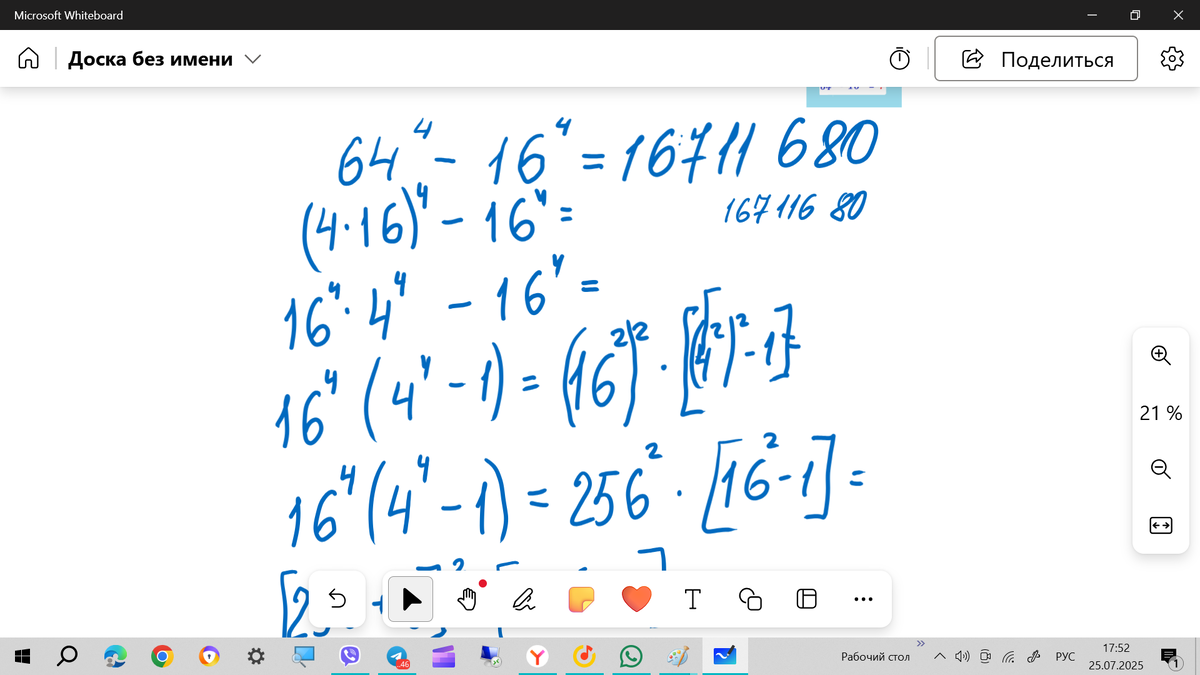 Microsoft Whiteboard
Доска без имени
Поделиться
64⁴ - 16⁴ = 16711 680
167 116 80
(4·16)⁴ - 16⁴ =
16⁴·4⁴ - 16⁴ =
16⁴(4⁴-1) = (16²)²·[(4²)²-1]=
16⁴(4⁴-1) = 256²·[16²-1]=
21 %
T
46
Рабочий стол
РУС
17:52
25.07.2025
1